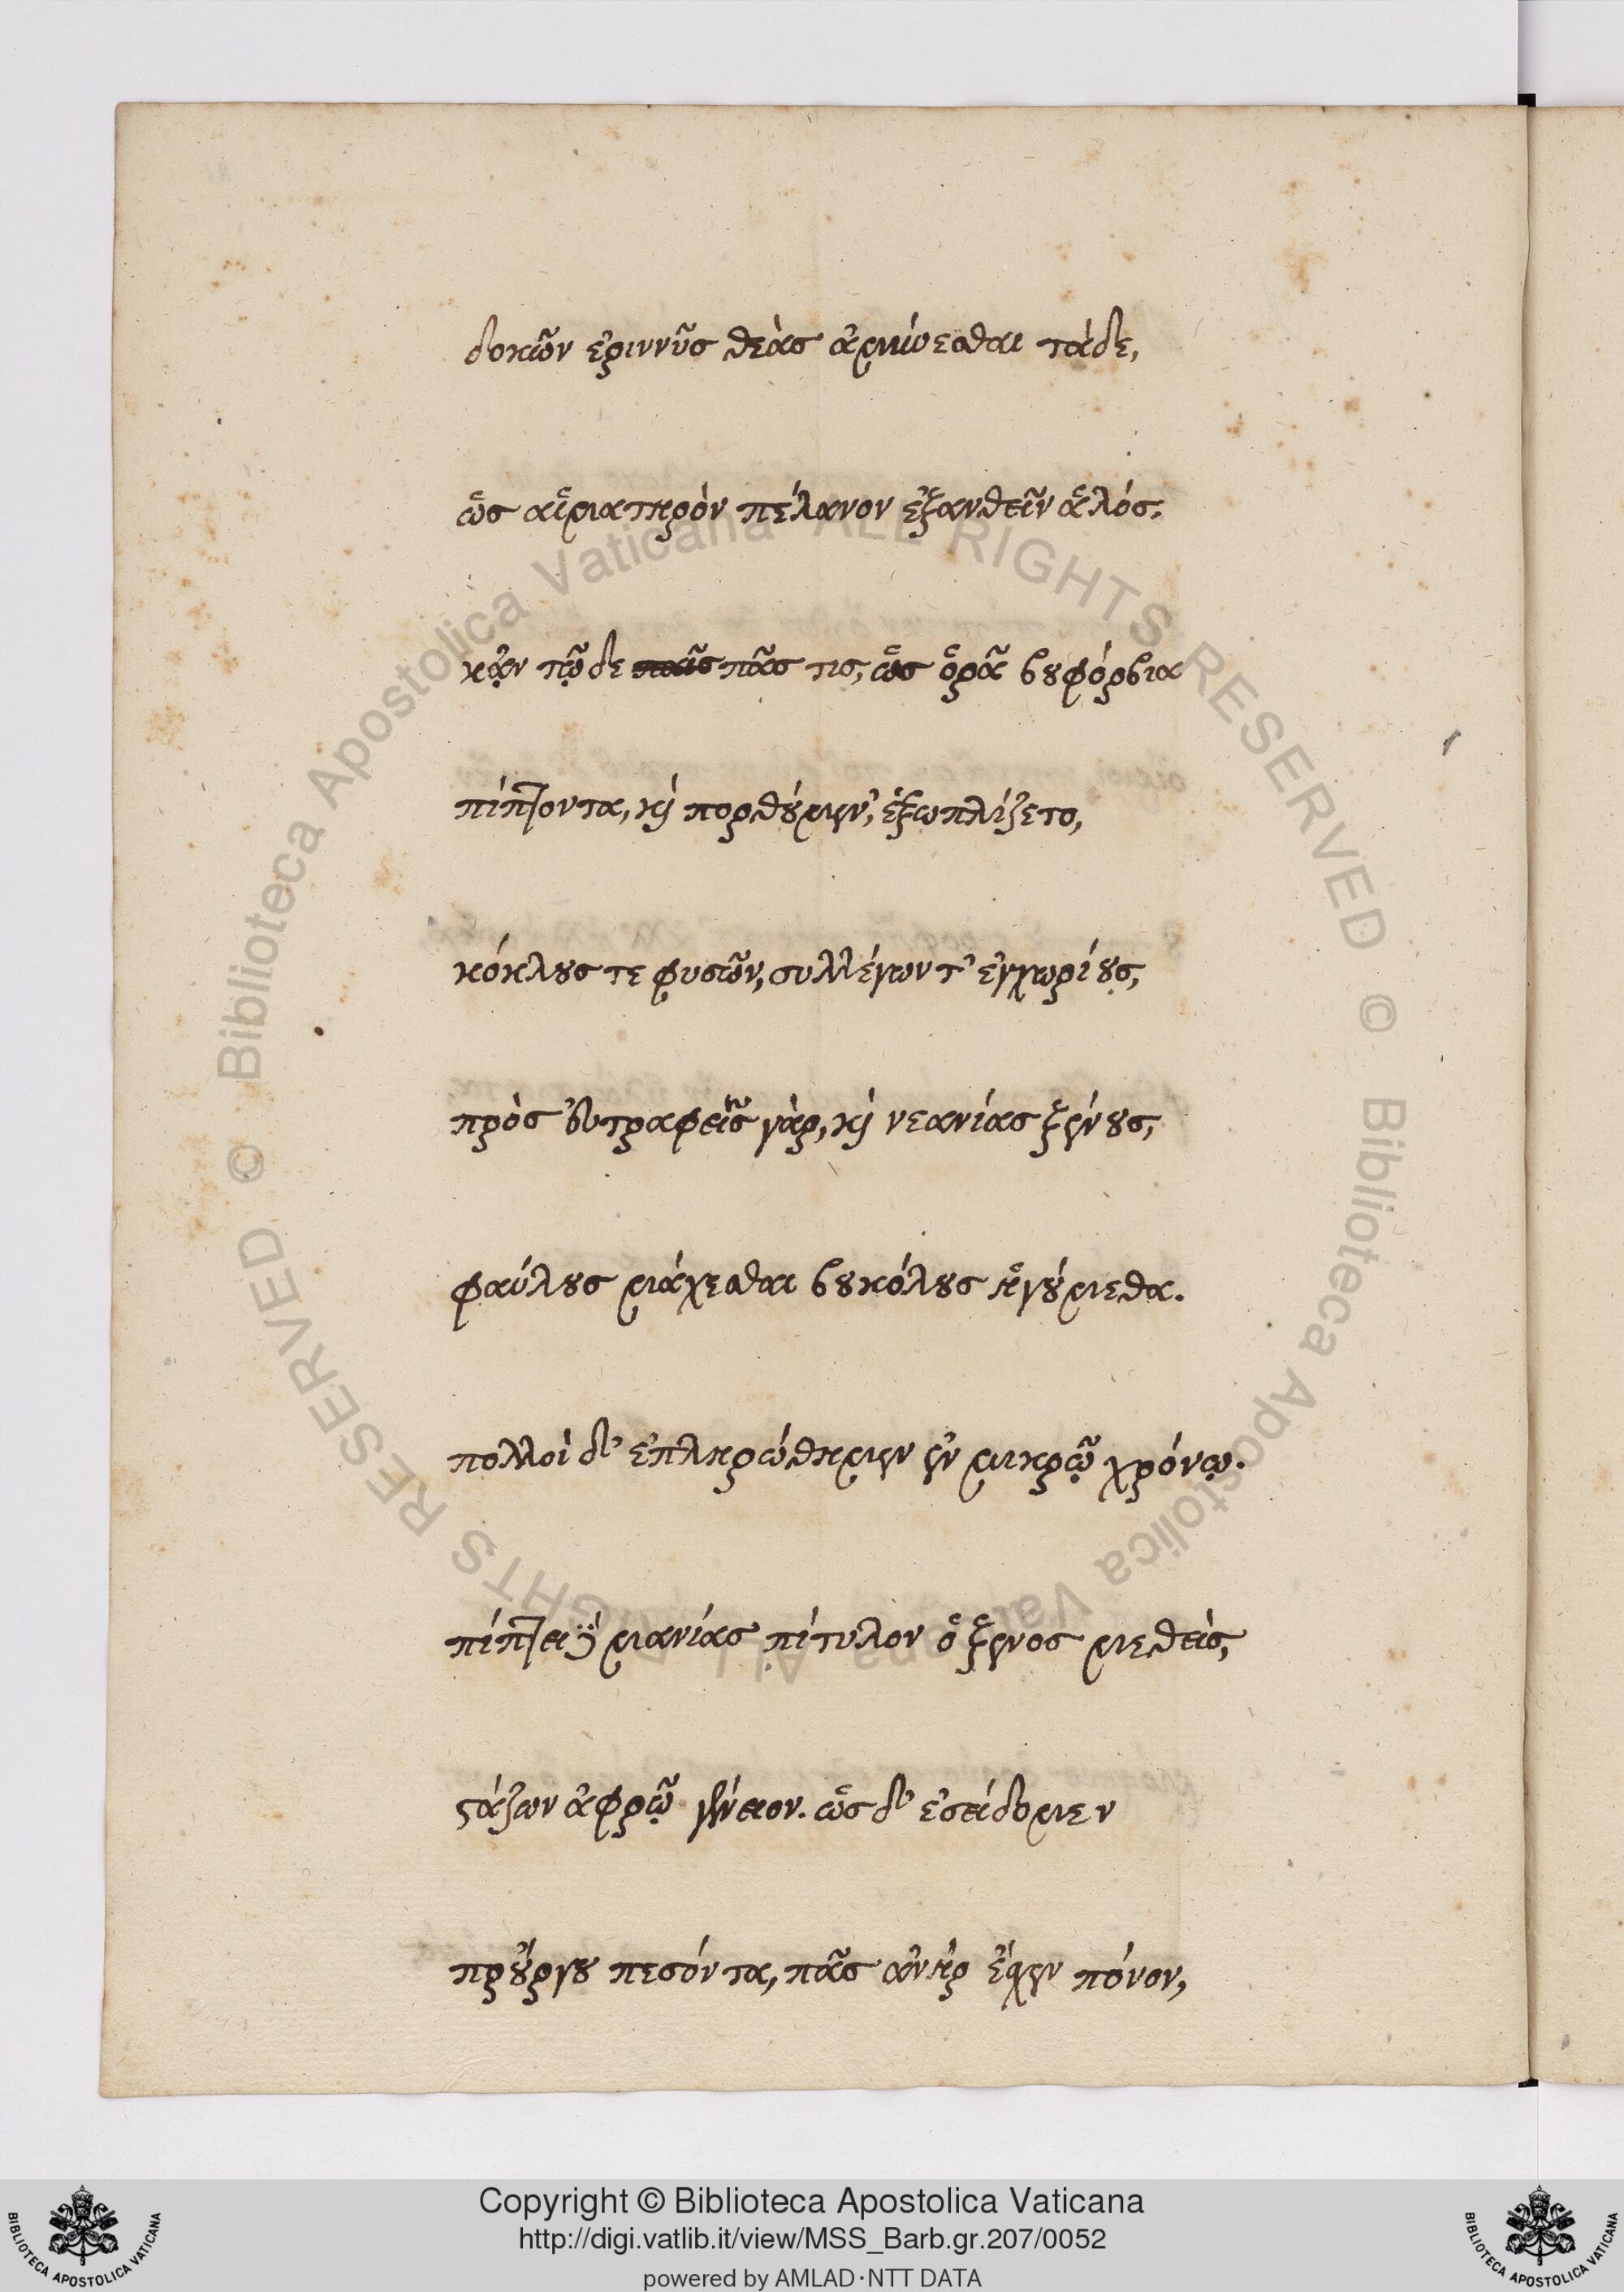 δοκῶν ἐριννῦς θεὰς ἀμύνεσθαι τάδε,
ὥς αἱματηρὸν πέλανον ἐξανθεῖν ἁλός.
κᾀν τῷδε πᾶς τις, ὡς ὁρᾶ βουφόρβια
πίπτοντα, καὶ πορθούμεν', ἐξωπλίζετο,
κόκλους τε φυσῶν, συλλέγων τ' ἐγχωρίους,
πρὸς εὐτραφεῖς γὰρ, καὶ νεανίας ξένους,
φαύλους μάχεσθαι βουκόλους ἡγούμεθα.
πολλοὶ δ' ἐπληρώθημεν ἐν μικρῷ χρόνῳ.
πίπτει δὲ μανίας πίτυλον ὁ ξένος μεθεὶς,
στάζων ἀφρῷ γένειον. ὡς δ' ἐσείδομεν
προὔργου πεσόντα, πᾶς ἀνὴρ ἔχεν πόνον,
© Biblioteca Apostolica Vaticana ALL RIGHTS RESERVED
© Biblioteca Apostolica Vaticana ALL RIGHTS RESERVED
Copyright © Biblioteca Apostolica Vaticana
http://digi.vatlib.it/view/MSS_Barb.gr.207/0052
powered by AMLAD·NTT DATA
BIBLIOTECA APOSTOLICA VATICANA
BIBLIOTECA APOSTOLICA VATICANA